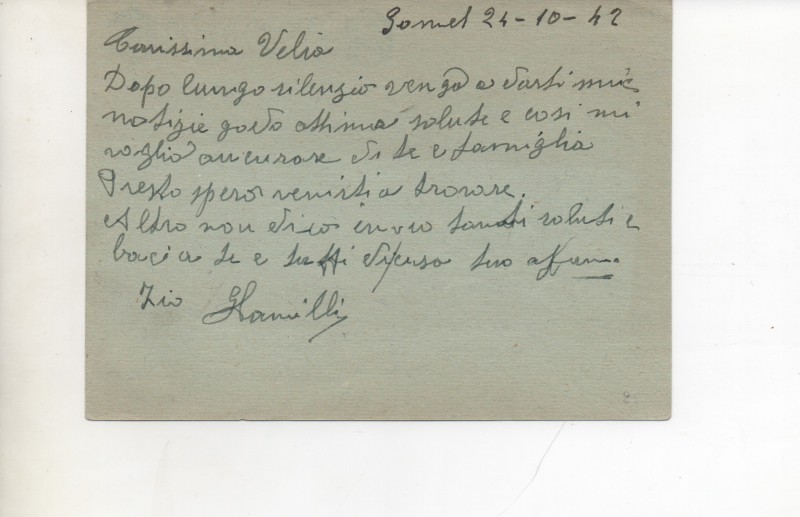 Gomel 24-10-42
Carissima Velia
Dopo lungo silenzio vengo a darti mie
notizie godo ottima salute e così mi
voglio aucurare di te e famiglia
Presto spero venirti a trovare.
Altro non dico invio tanti saluti e
baci a te e tutti di casa tuo affmo.
Zio